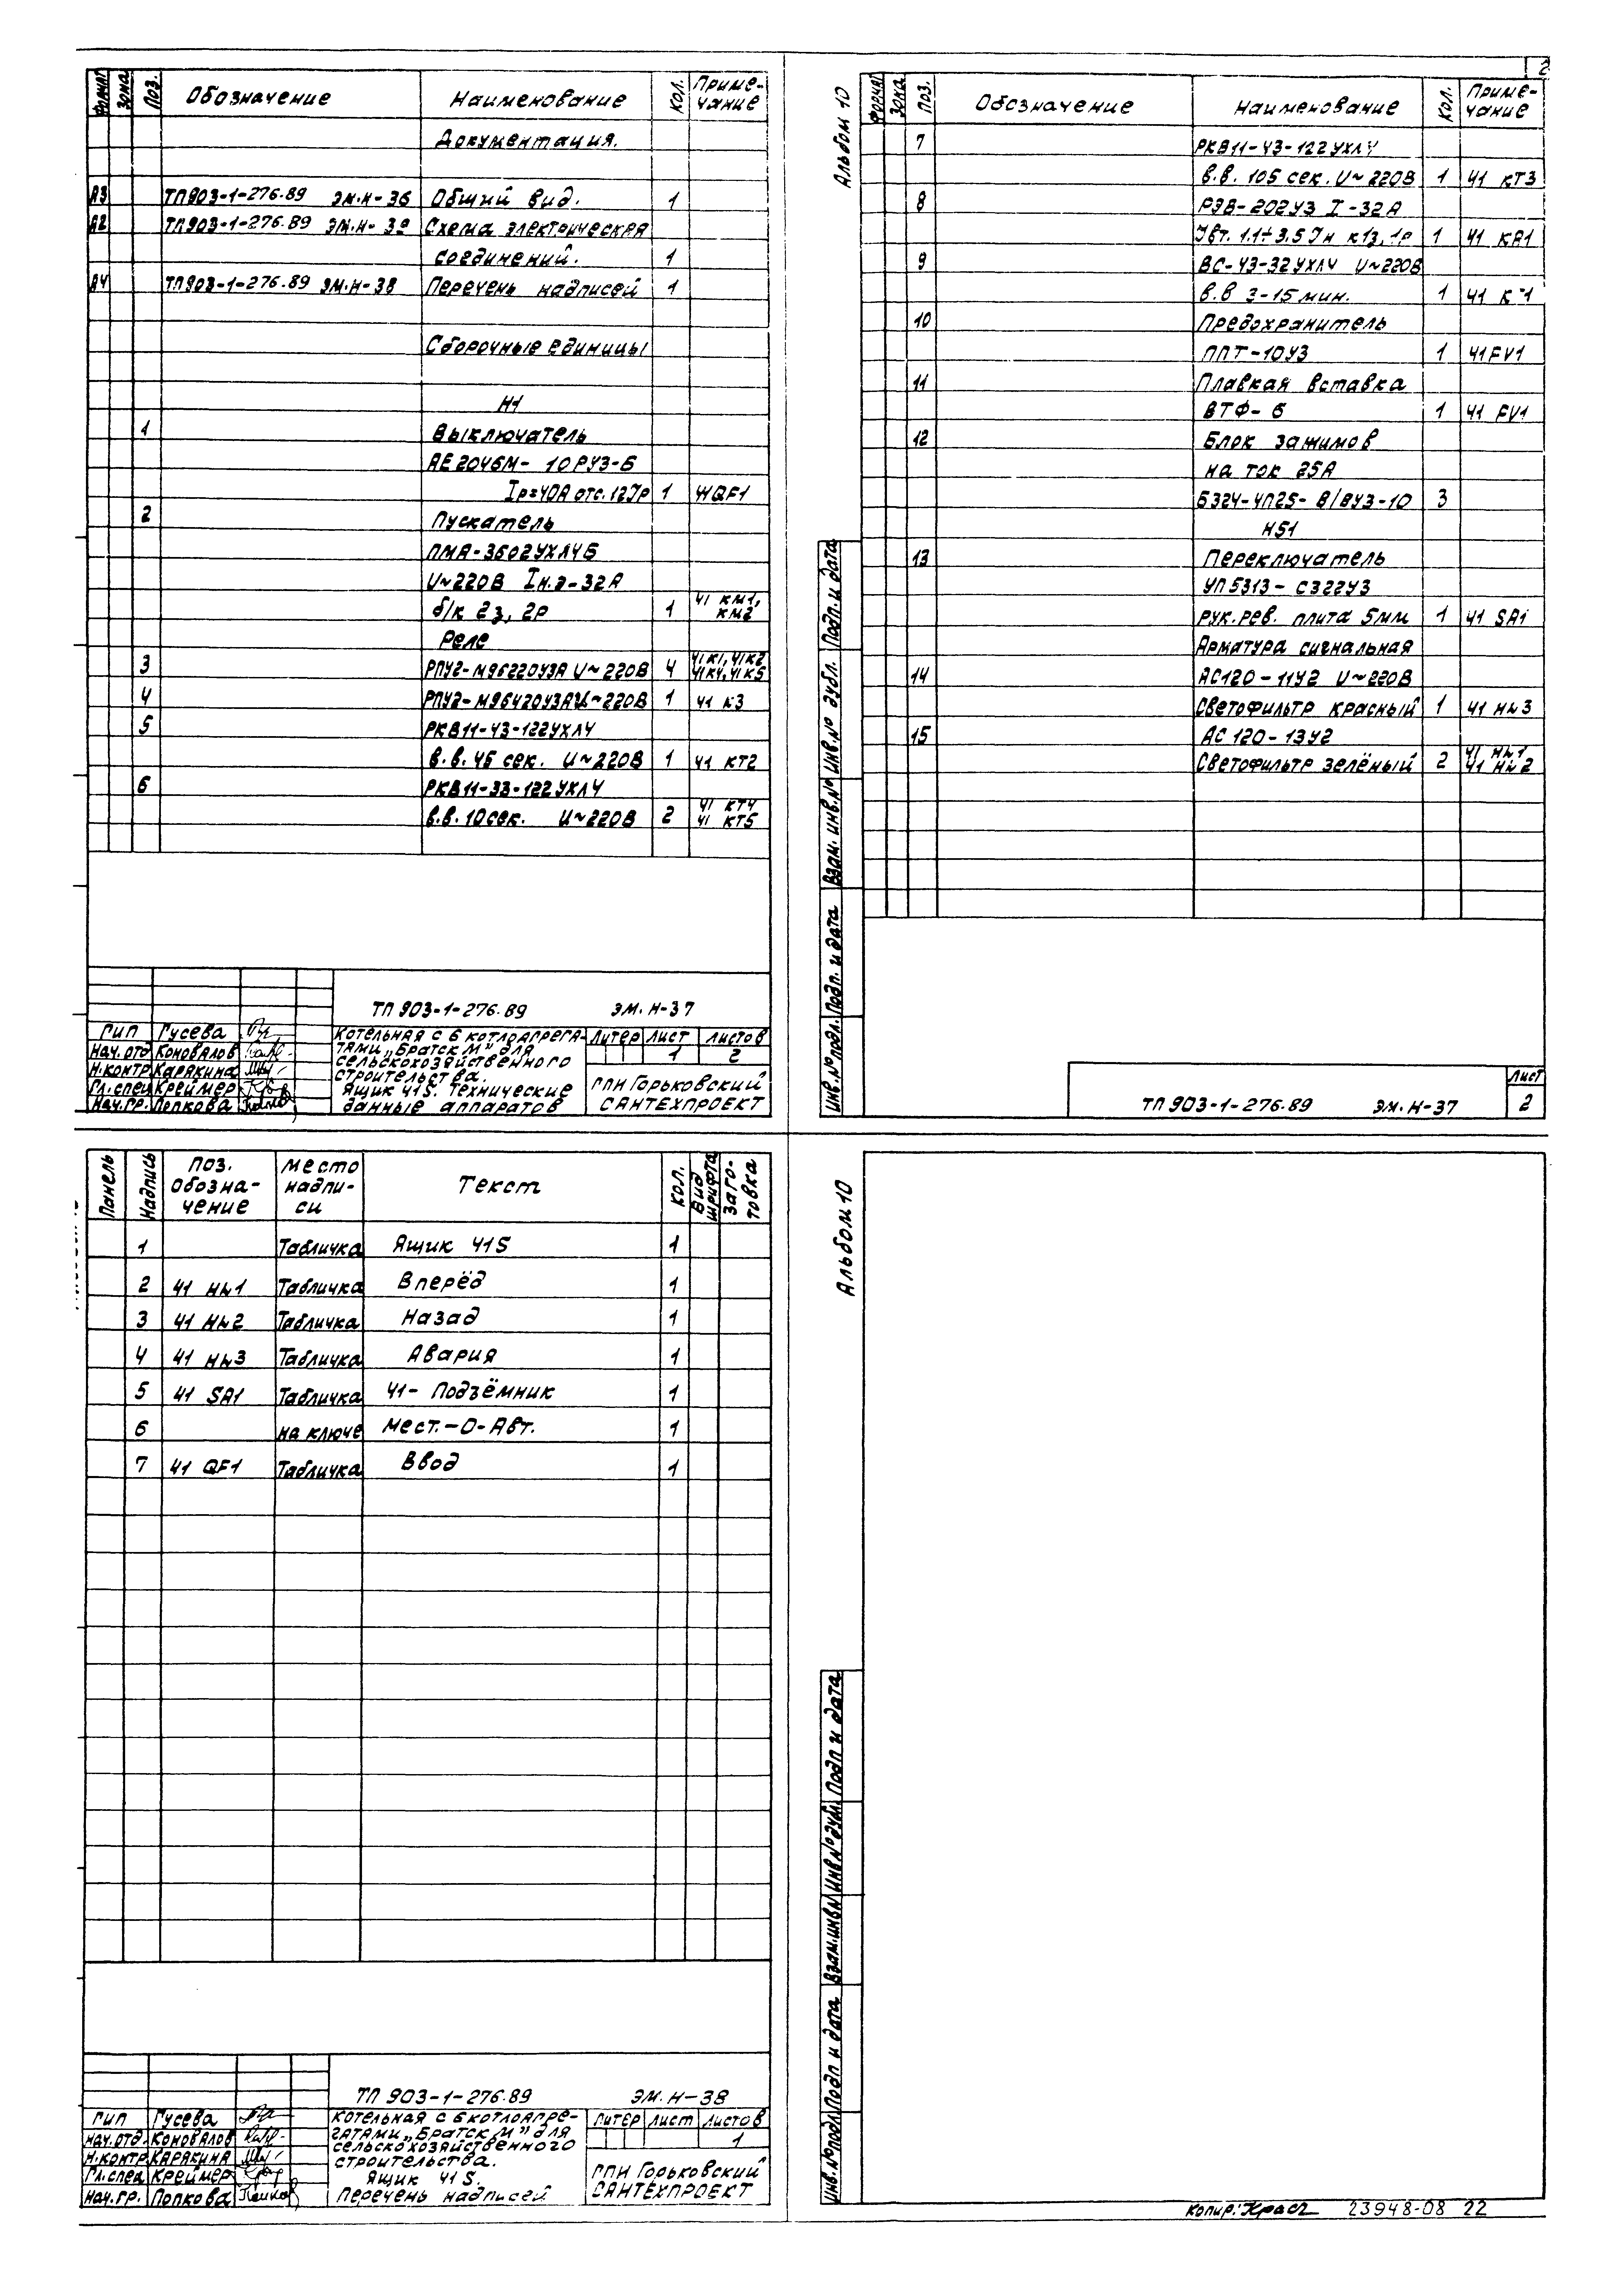 Формат Зона Поз. Обозначение Наименование Кол. Приме-
чание
Документация.
А3 ТП903-1-276.89 ЭМ.Н-36 Общий вид. 1
А2 ТП903-1-276.89 ЭМ.Н-39 Схема электрическая
соединений. 1
А4 ТП903-1-276.89 ЭМ.Н-38 Перечень надписей 1
Сборочные единицы
Н1
1 Выключатель
АЕ2046М-10РУ3-Б
Iр=40А отс.12Iр 1 41QF1
2 Пускатель
ПМА-3602УХЛ4Б
U~220В Iн.э-32А
б/к 2з, 2р 1 41 КМ1,
КМ2
Реле
3 РПУ2-М96220У3А U~220В 4 41К1,41К2
41К4,41К5
4 РПУ2-М96420У3А U~220В 1 41 К3
5 РКВ11-43-122УХЛ4
в.в. 45 сек. U~220В 1 41 КТ2
6 РКВ11-33-122УХЛ4
в.в. 10сек. U~220В 2 41 КТ4
41 КТ5
ТП 903-1-276.89 ЭМ.Н-37
Гип Гусева
Нач.отд Коновалов
Н.контр Карякина
Гл.спец Креймер
Нач.гр. Попкова
Котельная с 6 котлоагрега-
тами „Братск М" для
сельскохозяйственного
строительства.
Ящик 41S. Технические
данные аппаратов
Литер Лист Листов
1 2
ГПИ Горьковский
САНТЕХПРОЕКТ
2
Альбом 10
Формат Зона Поз. Обозначение Наименование Кол. Приме-
чание
7 РКВ11-43-122УХЛ4
в.в. 105 сек. U~220В 1 41 КТ3
8 РЭВ-202У3 I-32А
Iвт. 1.1÷3.5Iн к1з, 1р 1 41 КА1
9 ВС-43-32УХЛ4 U~220В
в.в 3-15мин. 1 41
10 Предохранитель
ППТ-10У3 1 41FV1
11 Плавкая вставка
ВТФ-6 1 41 FV1
12 Блок зажимов
на ток 25А
Б324-4П25-В/ВУ3-10 3
Н51
13 Переключатель
УП5313-С322У3
рук.рев. плита 5мм 1 41 SA1
Арматура сигнальная
14 АС120-11У2 U~220В
Светофильтр красный 1 41 HL3
15 АС120-13У2
Светофильтр зелёный 2 41 HL1
41 HL2
Инв.№подл. Подп. и дата Взам. инв.№ Инв.№ дубл. Подп. и дата
ТП 903-1-276.89 ЭМ.Н-37
Лист
2
Панель Надпись Поз.
обозна-
чение Место
надпи-
си Текст Кол. Вид
шрифта Заго-
товка
1 Табличка Ящик 41S 1
2 41 HL1 Табличка Вперёд 1
3 41 HL2 Табличка Назад 1
4 41 HL3 Табличка Авария 1
5 41 SA1 Табличка 41- Подъёмник 1
6 на ключе Мест.-О-Авт. 1
7 41 QF1 Табличка Ввод 1
ТП 903-1-276.89 ЭМ.Н-38
Гип Гусева
Нач.отд. Коновалов
Н.контр Карякина
Гл.спец Креймер
Нач.гр. Попкова
Котельная с 6котлоагре-
гатами „Братск М" для
сельскохозяйственного
строительства.
Ящик 41S.
Перечень надписей
Литер Лист Листов
1
ГПИ Горьковский
САНТЕХПРОЕКТ
Альбом 10
Инв.№подл. Подп и дата Взам.инв№ Инв№дубл. Подп и дата
Копир: 23948-08 22